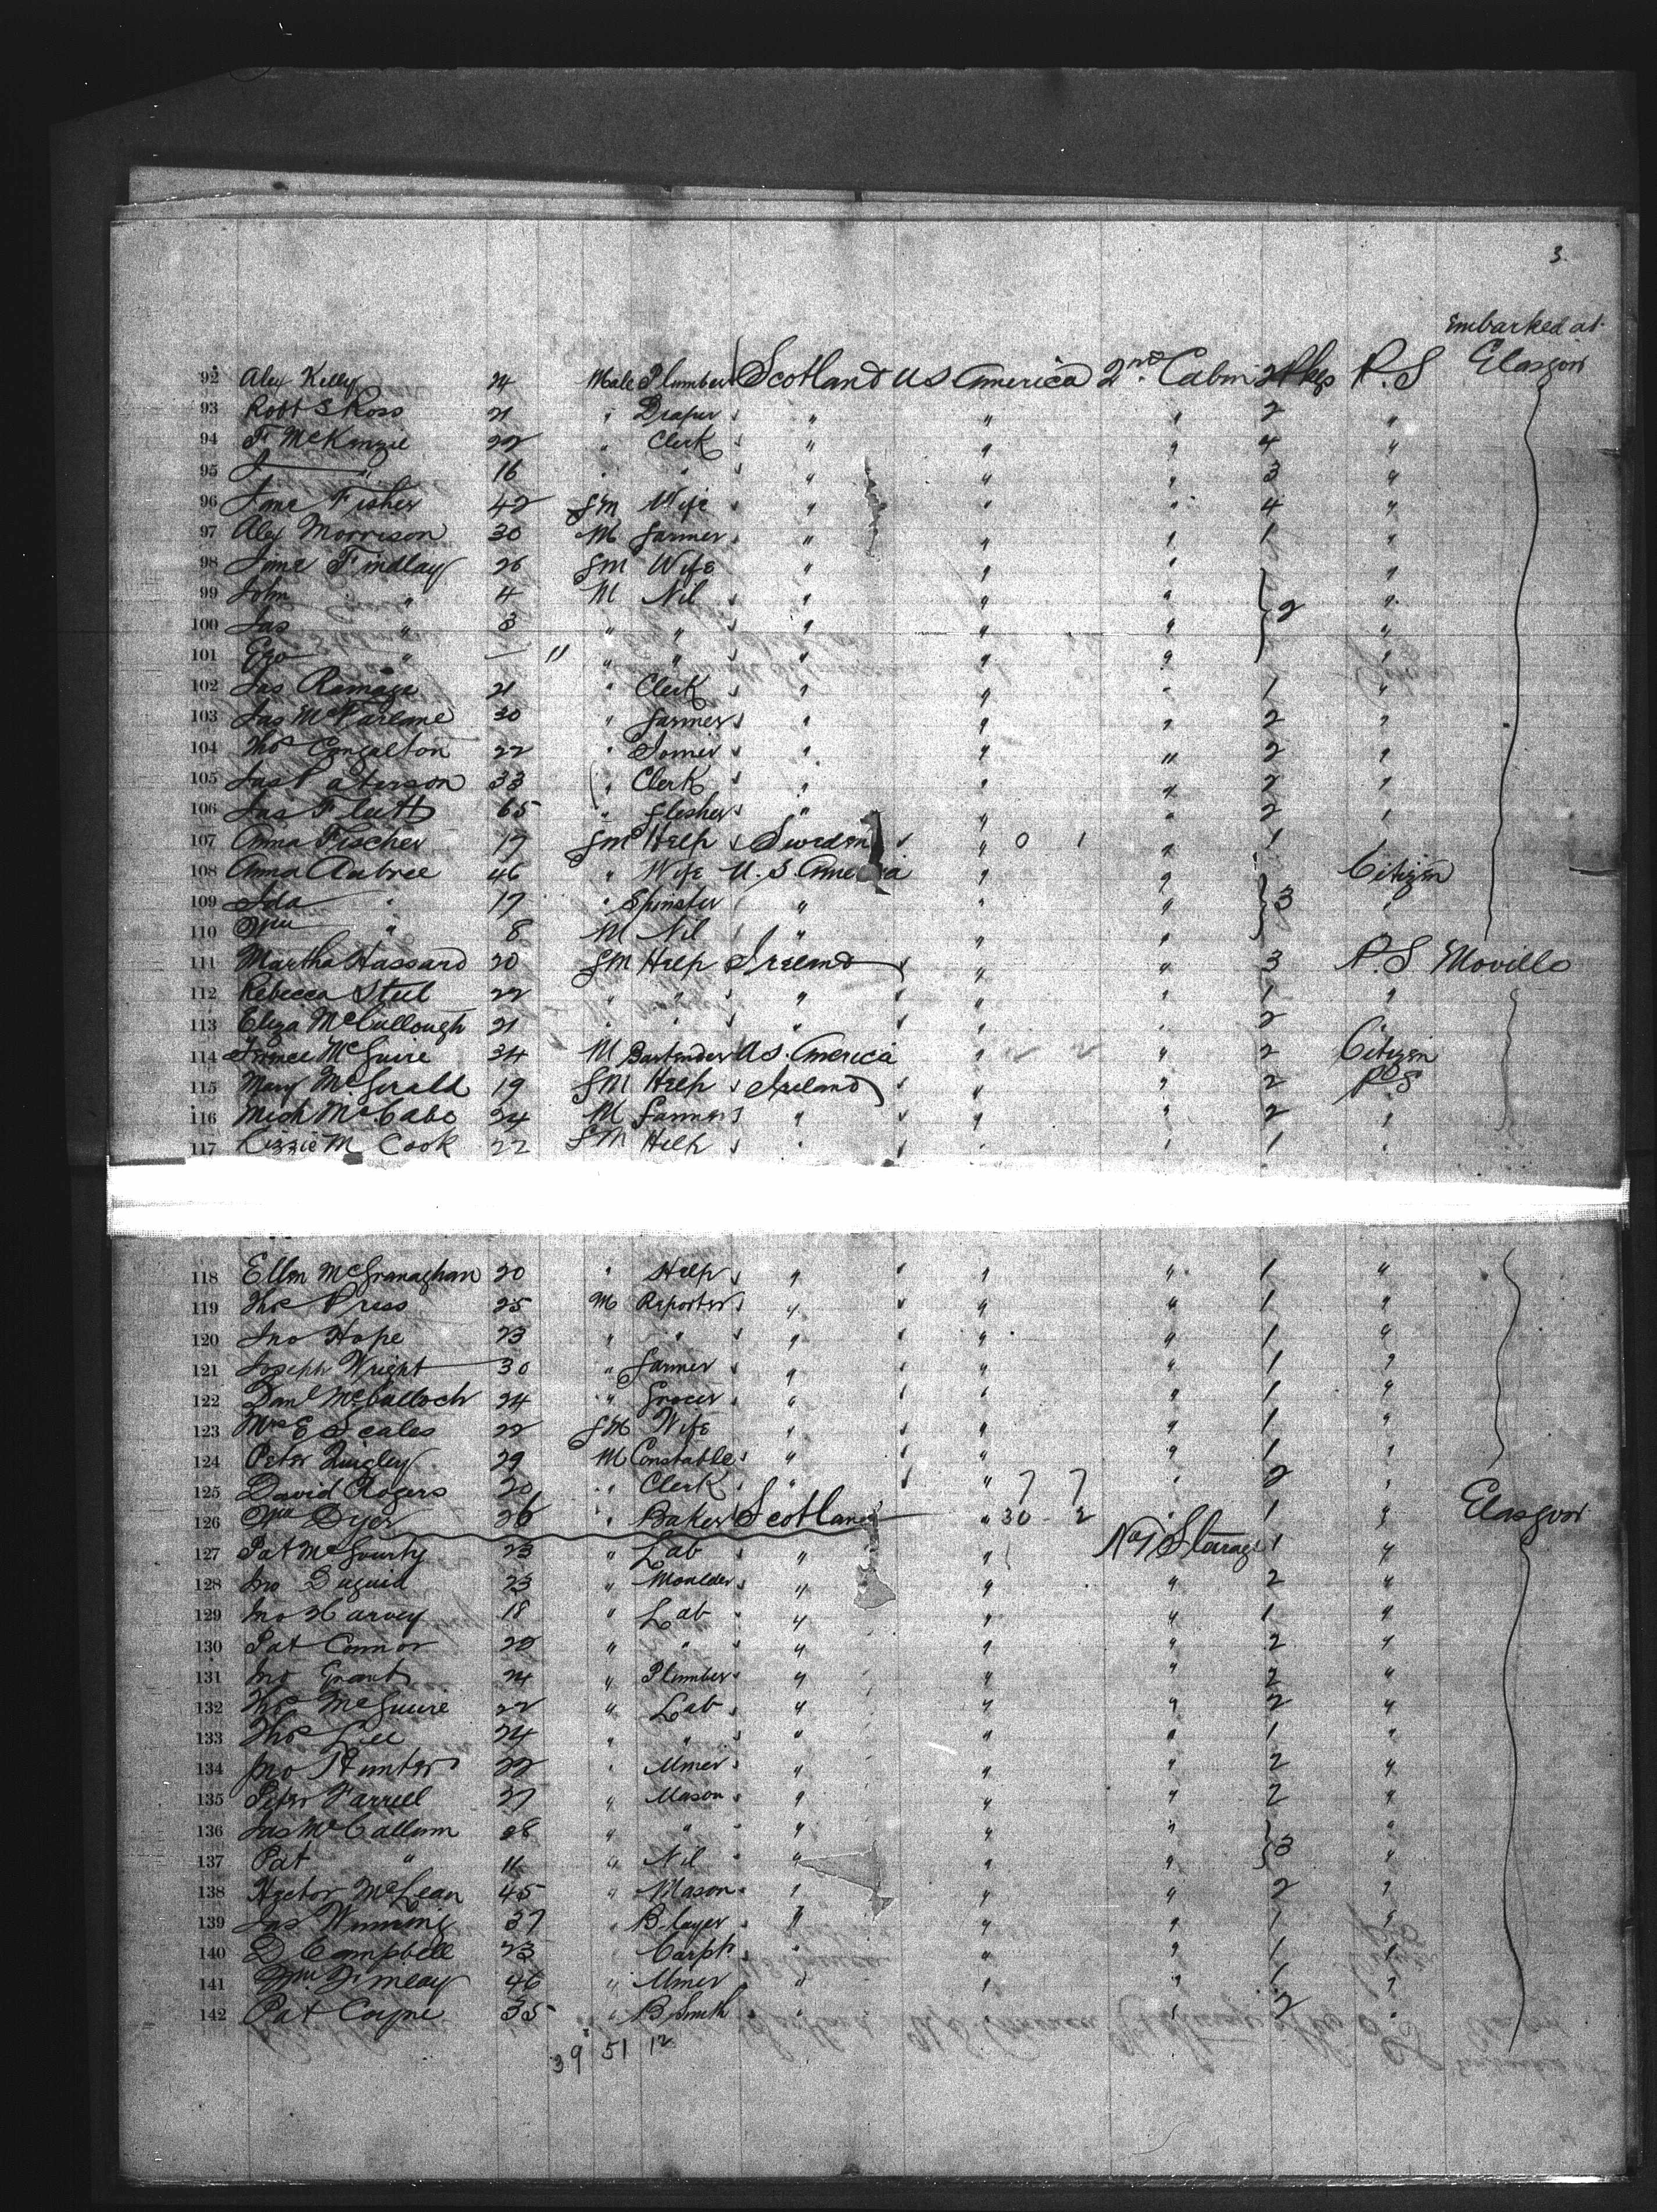 3.
Embarked at
92 Alex Kelly 24 Male Plumber Scotland US America 2nd Cabin 2 Pkgs P.S Glasgow
93 Robt S Ross 21 " Draper " " " 2 "
94 F McKenzie 22 " Clerk " " " 4 "
95 J " 16 " " " " " 3 "
96 Jane Fisher 42 fm Wife " " " 4 "
97 Alex Morrison 30 M farmer " " " 1 "
98 Jane Findlay 26 fm Wife " " " "
99 John " 4 M Nil " " " 2 "
100 Jas " 3 " " " " " "
101 Geo " — 11 " " " " " "
102 Jas Ramage 21 " Clerk " " " 1 "
103 Jas McFarlane 30 " farmer " " " 2 "
104 Thos Congalton 22 " " " " 2 "
105 Jas Paterson 33 " Clerk " " " 2 "
106 Jas Flett 65 " flesher " " " 2 "
107 Anna Fischer 19 fm Help Sweden " 0 1 " 1
108 Anna Aubree 46 " Wife U.S. America " " Citizen
109 Ada " 17 " Spinster " " " 3 "
110 Wm " 8 M Nil " " "
111 Martha Hassard 20 fm Help Ireland " " 3 P.S Moville
112 Rebecca Steel 22 " " " " " 1 "
113 Eliza McCullough 21 " " " " " 2 "
114 McGuire 34 M Bartender US. America " 2 2 " 2 Citizen
115 Mary McGerald 19 fm Help Ireland " " 2 PS
116 Mich McCabe 24 M farmer " " " 2 "
117 Lizzie M Cook 22 fm Help " " " 1 "
118 Ellen McGranaghan 20 " Help " " " 1 "
119 Thos Press 25 M Reporter " " " 1 "
120 Jno Hope 23 " " " " " 1 "
121 Joseph Wright 30 " farmer " " " 1 "
122 Danl McCulloch 24 " Grocer " " " 1 "
123 Mrs E Scales 22 fm Wife " " " 1 "
124 Peter Quigley 29 M Constable " " " 1 "
125 David Rogers 20 " Clerk " " 7 7 " 2 "
126 Wm Dyer 26 " Baker Scotland " 30 - 2 " 1 " Glasgow
127 Pat McGourty 23 " Lab " " No 1 Steerage 1 "
128 Jno Duguid 23 " Moulder " " " 2 "
129 Jno Harvey 18 " Lab " " " 1 "
130 Pat Connor 20 " " " " " 2 "
131 Jno Grant 24 " Plumber " " " 2 "
132 Thos McGuire 22 " Lab " " " 2 "
133 Thos Lee 24 " " " " " 1 "
134 Jno Hunter 22 " Miner " " " 2 "
135 Peter Farrell 27 " Mason " " " 2 "
136 Jas McCallum 28 " " " " " "
137 Pat " 11 " Nil " " " 3 "
138 Hector McLean 45 " Mason " " " 2 "
139 Jas Winning 37 " B-layer " " " 1 "
140 D Campbell 23 Carptr " " " 1 "
141 Wm Finlay 46 " Miner " " " 1 "
142 Pat Coyne 35 " B Smith " " 2 "
39 51 12